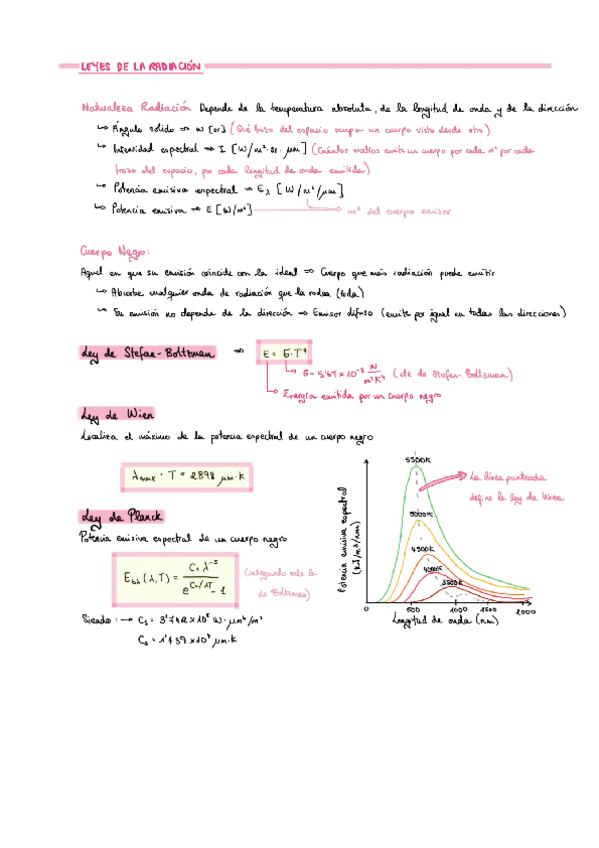 LEYES DE LA RADIACIÓN
Naturaleza Radiación Depende de la temperatura absoluta, de la longitud de onda y de la dirección
↳ Ángulo sólido ⇒ ω [sr] (Qué trozo del espacio ocupa un cuerpo visto desde otro)
↳ Intensidad espectral → I [W/m²·sr·μm] (Cuántos watios emite un cuerpo por cada m² por cada
trozo del espacio, por cada longitud de onda emitida)
↳ Potencia emisiva espectral → Eλ [W/m²/μm]
↳ Potencia emisiva → E [W/m²] → m² del cuerpo emisor
Cuerpo Negro:
Aquel en que su emisión coincide con la ideal ⇒ Cuerpo que más radiación puede emitir
↳ Absorbe cualquier onda de radiación que la rodea (toda)
↳ Su emisión no depende de la dirección ⇒ Emisor difuso (emite por igual en todas las direcciones)
Ley de Stefan-Boltzman ⇒ E = σ·T⁴
σ = 5'67 x 10⁻⁸ W/m²K⁴ (cte de Stefan-Boltzman)
Energía emitida por un cuerpo negro
Ley de Wien
Localiza el máximo de la potencia espectral de un cuerpo negro
λmax · T = 2898 μm·k
Ley de Planck
Potencia emisiva espectral de un cuerpo negro
Ebλ (λ,T) = C₁ λ⁻⁵ / e^(C₂/λT) - 1
(integrando sale la
de Boltzman)
Siendo: → C₁ = 3'742 x 10⁸ W·μm⁴/m²
C₂ = 1'439 x 10⁴ μm·k
5500K
5000K
4500K
4000K
3500K
La línea punteada
define la ley de Wien
Potencia emisiva espectral
(kJ/m³/nm)
0 500 1000 1500 2000
Longitud de onda (nm)